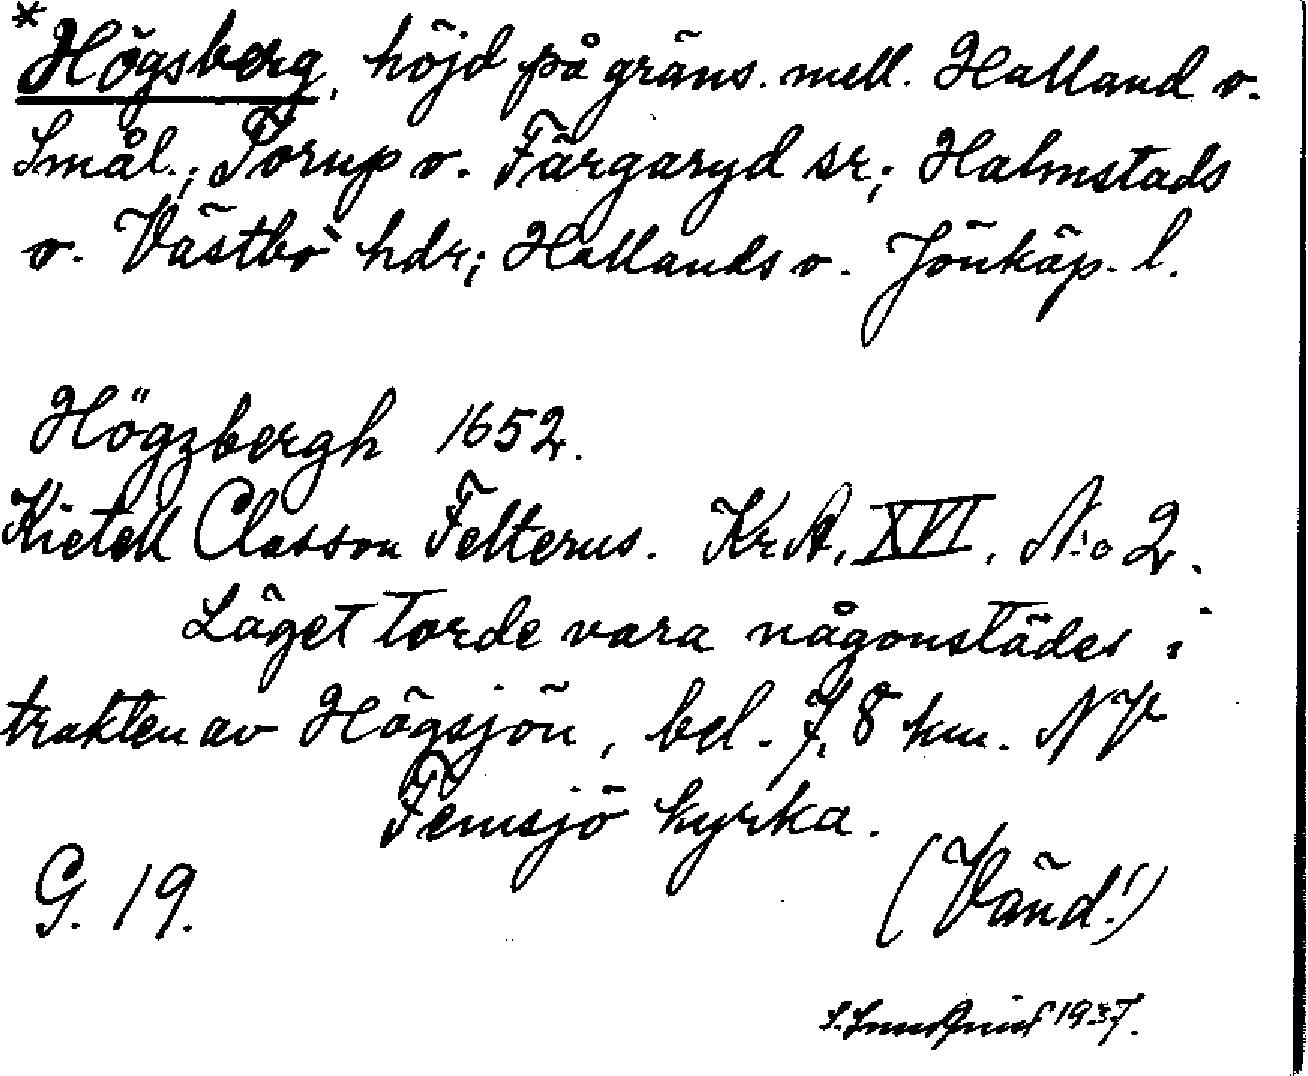 *Högsberg, höjd på gräns. mell. Halland o.
Smål.; Torup o. Färgaryd sr; Halmstads
o. Västbo hdr; Hallands o. Jönköp. l.
Högzbergh 1652.
Kietell Classon Felterus. KrA, XVI, N:o 2.
Läget torde vara någonstädes i
trakten av Högsjön, bel. 7,8 km. NV
Femsjö kyrka.
G. 19.
(Vänd!)
1937.